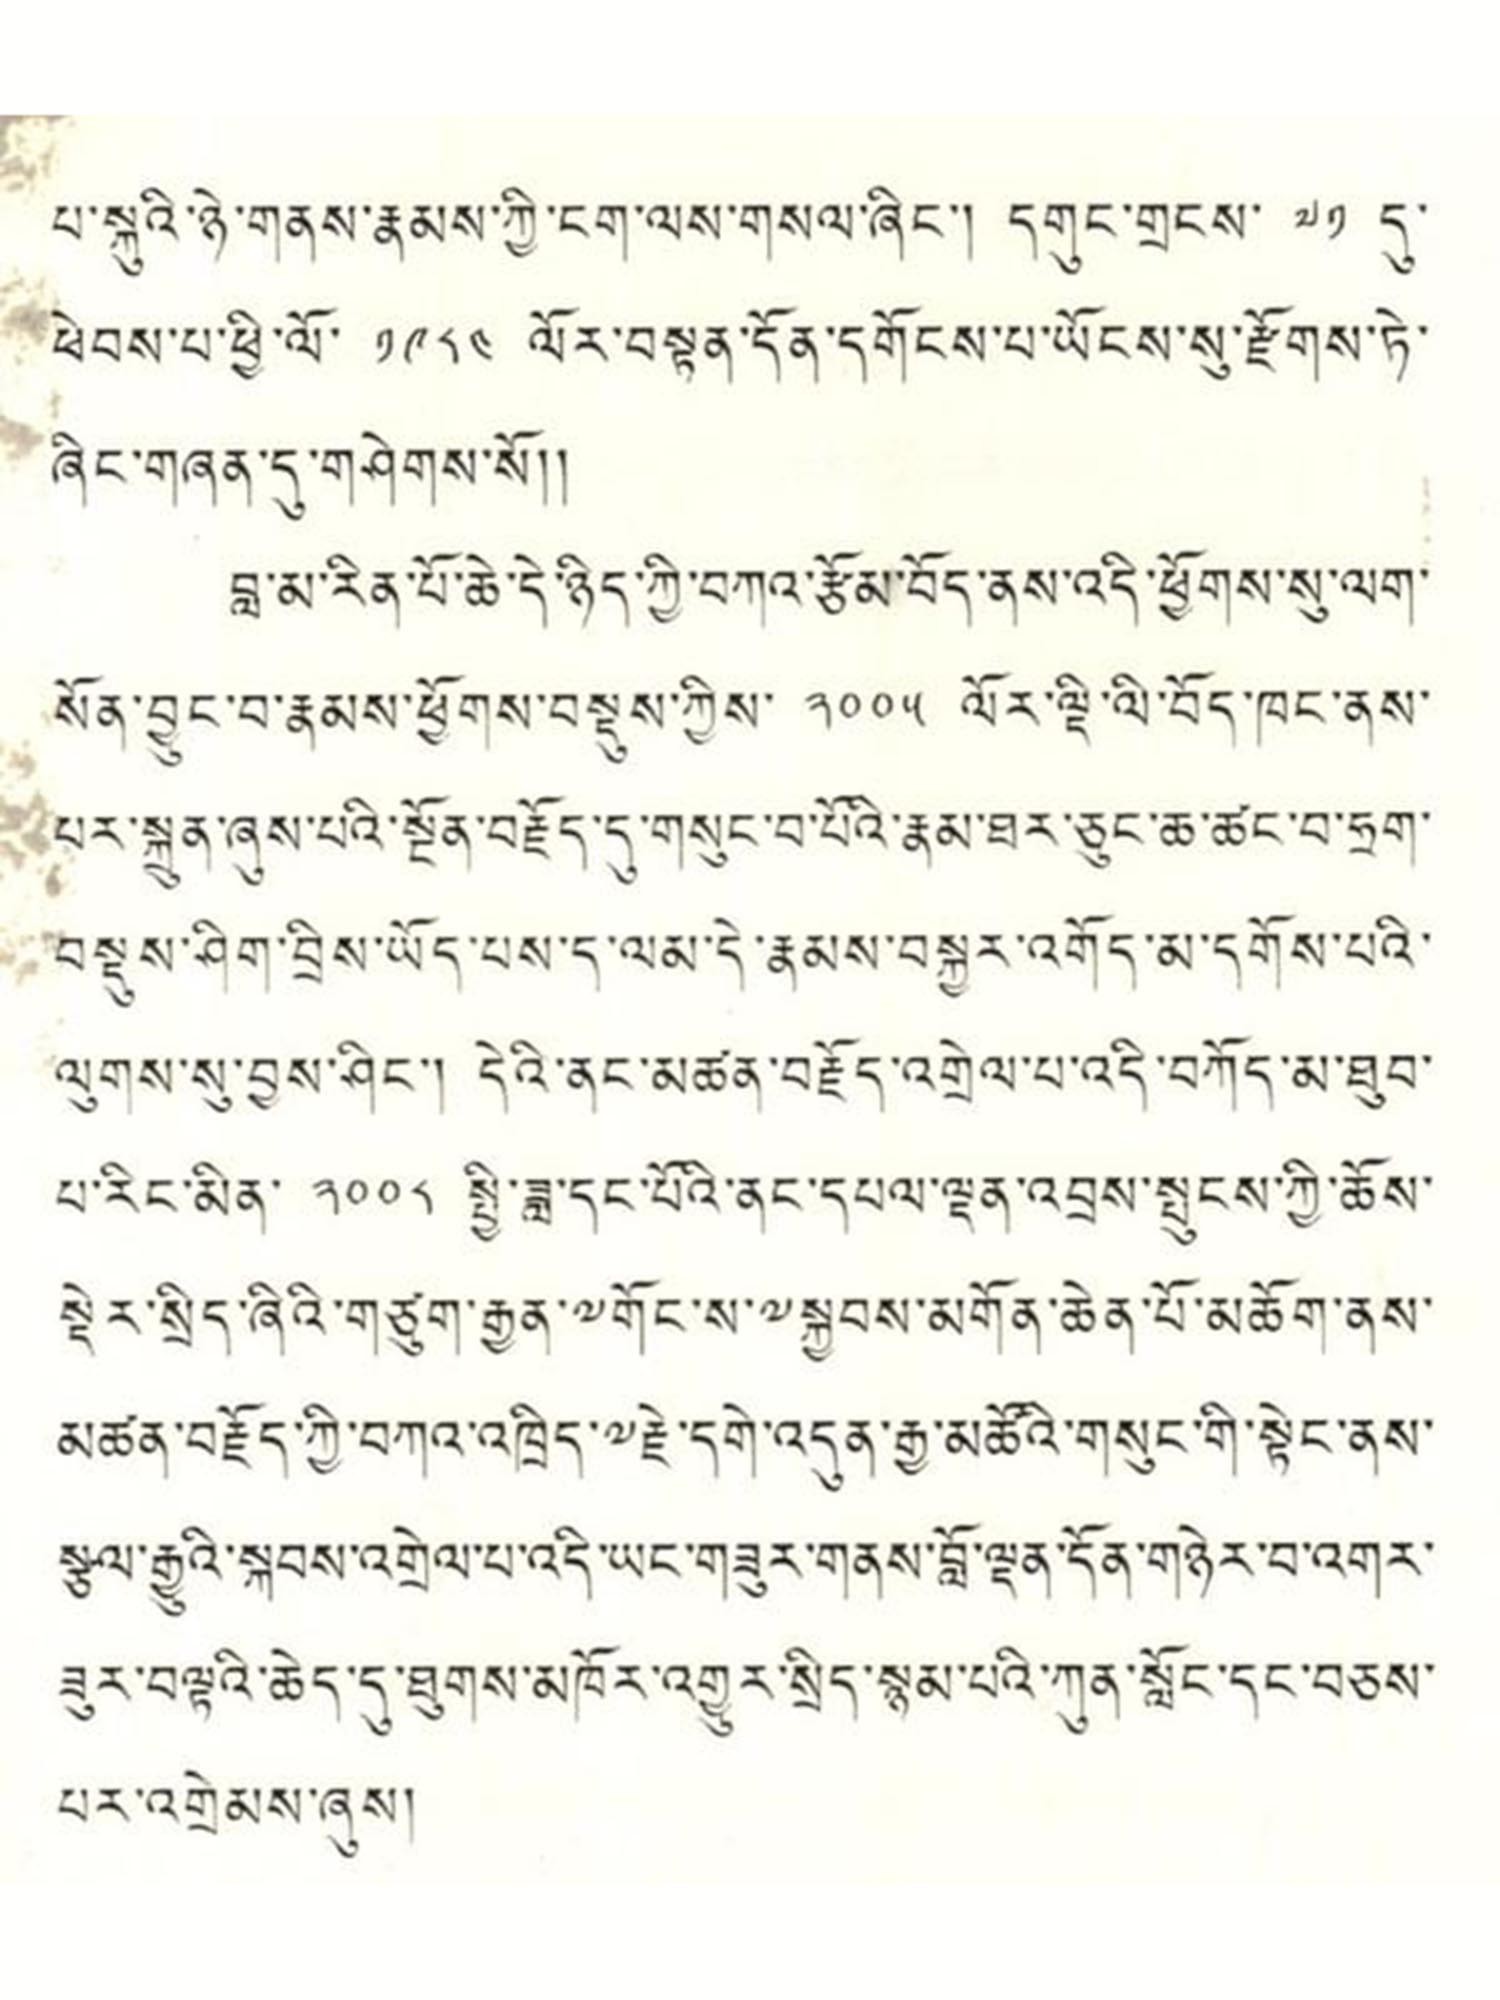 པ་སྐུའི་ཉེ་གནས་རྣམས་ཀྱི་ངག་ལས་གསལ་ཞིང་། དགུང་གྲངས་ ༧༡ དུ་
ཕེབས་པ་ཕྱི་ལོ་ ༡༩༨༤ ལོར་བསྟན་དོན་དགོངས་པ་ཡོངས་སུ་རྫོགས་ཏེ་
ཞིང་གཞན་དུ་གཤེགས་སོ།།
བླ་མ་རིན་པོ་ཆེ་དེ་ཉིད་ཀྱི་བཀའ་རྩོམ་བོད་ནས་འདི་ཕྱོགས་སུ་ལག་
སོན་བྱུང་བ་རྣམས་ཕྱོགས་བསྡུས་ཀྱིས་ ༢༠༠༥ ལོར་ལྡི་ལི་བོད་ཁང་ནས་
པར་སྐྲུན་ཞུས་པའི་སྔོན་བརྗོད་དུ་གསུང་བ་པོའི་རྣམ་ཐར་ཅུང་ཆ་ཚང་བ་ཧྲག་
བསྡུས་ཤིག་བྲིས་ཡོད་པས་ད་ལམ་དེ་རྣམས་བསྐྱར་འགོད་མ་དགོས་པའི་
ལུགས་སུ་བྱས་ཤིང་། དེའི་ནང་མཚན་བརྗོད་འགྲེལ་པ་འདི་བཀོད་མ་ཐུབ་
པ་རིང་མིན་ ༢༠༠༨ སྤྱི་ཟླ་དང་པོའི་ནང་དཔལ་ལྡན་འབྲས་སྤུངས་ཀྱི་ཆོས་
སྡེར་སྲིད་ཞིའི་གཙུག་རྒྱན་༧གོང་ས་༧སྐྱབས་མགོན་ཆེན་པོ་མཆོག་ནས་
མཚན་བརྗོད་ཀྱི་བཀའ་འཁྲིད་༧རྗེ་དགེ་འདུན་རྒྱ་མཚོའི་གསུང་གི་སྟེང་ནས་
སྩལ་རྒྱུའི་སྐབས་འགྲེལ་པ་འདི་ཡང་གཟུར་གནས་བློ་ལྡན་དོན་གཉེར་བ་འགར་
ཟུར་བལྟའི་ཆེད་དུ་ཐུགས་མཁོར་འགྱུར་སྲིད་སྙམ་པའི་ཀུན་སློང་དང་བཅས་
པར་འགྲེམས་ཞུས།